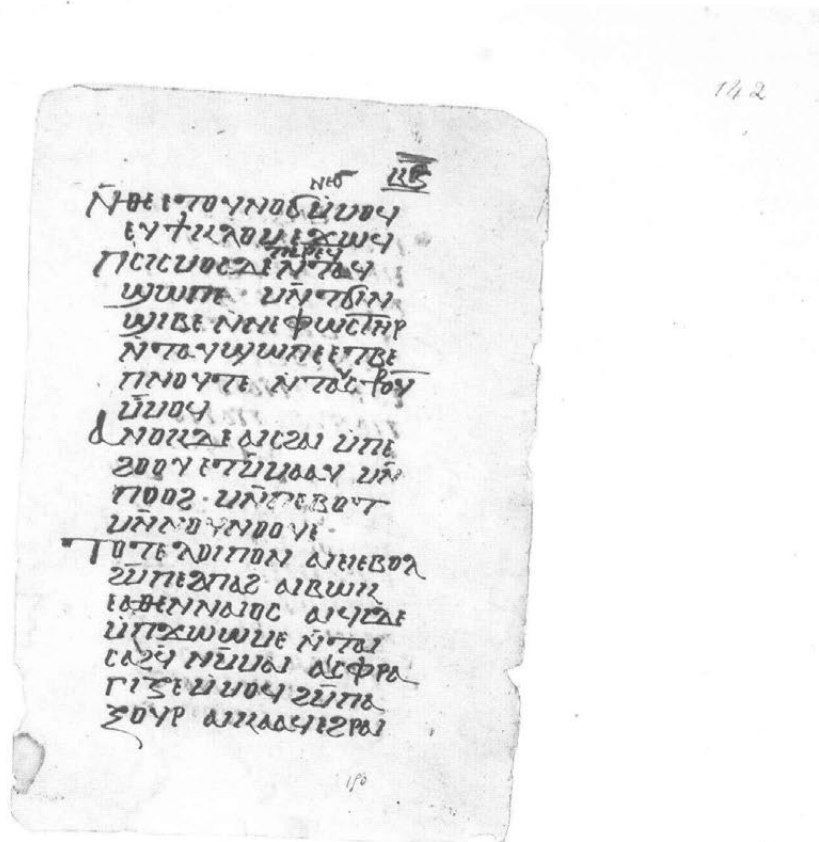 142
ⲕⲍ
ⲛⲉϭ
Ⲛ̄ⲑⲉ ⲉⲧⲟⲩⲛⲟϭⲙ̄ⲙⲟϥ
ⲉⲩϯⲕⲗⲟⲙ ⲉϫⲱϥ
ⲧⲣⲉϥ
Ⲡⲥⲓⲥⲙⲟⲥ ⲇⲉ ⲛ̄ⲧⲁϥ
ϣⲱⲡⲉ · ⲙⲛ̄ⲧϭⲓⲛ
ϣⲓⲃⲉ ⲛ̄ⲛⲉⲫⲱⲥⲧⲏⲣ
ⲛ̄ⲧⲁⲩϣⲱⲡⲉ ⲉⲧⲃⲉ
ⲡⲛⲟⲩⲧⲉ ⲛ̄ⲧⲁⲩⲥ⳨ⲟⲩ
ⲙ̄ⲙⲟϥ
Ⲁⲛⲟⲕ ⲇⲉ ⲁⲓⲥϩⲁⲓ ⲙ̄ⲡⲉ
ϩⲟⲟⲩ ⲉⲧⲙ̄ⲙⲁⲩ ⲙⲛ̄
ⲡⲟⲟϩ · ⲙⲛ̄ⲡⲉⲃⲟⲧ
ⲙⲛ̄ⲛⲟⲩⲛⲟⲟⲩⲉ ·
Ⲧⲟⲧⲉ ⲗⲟⲓⲡⲟⲛ ⲁⲓⲉⲓ ⲉⲃⲟⲗ
ϩⲙ̄ⲡⲉϩⲡⲁϩ ⲁⲓⲃⲱⲕ
ⲉⲁⲑⲉⲛⲛⲁⲓⲟⲥ ⲁⲓϥⲓ ⲇⲉ
ⲙ̄ⲡϫⲱⲱⲙⲉ ⲛ̄ⲧⲁⲓ
ⲥⲁϩϥ̄ ⲛⲙ̄ⲙⲁⲓ ⲁⲓⲥⲫⲣⲁ
ⲅⲓⲍⲉ ⲙ̄ⲙⲟϥ ϩⲙ̄ⲡⲁ
ⲝⲟⲩⲣ ⲁⲓⲕⲁⲁϥ ⲉϩⲣⲁⲓ
190